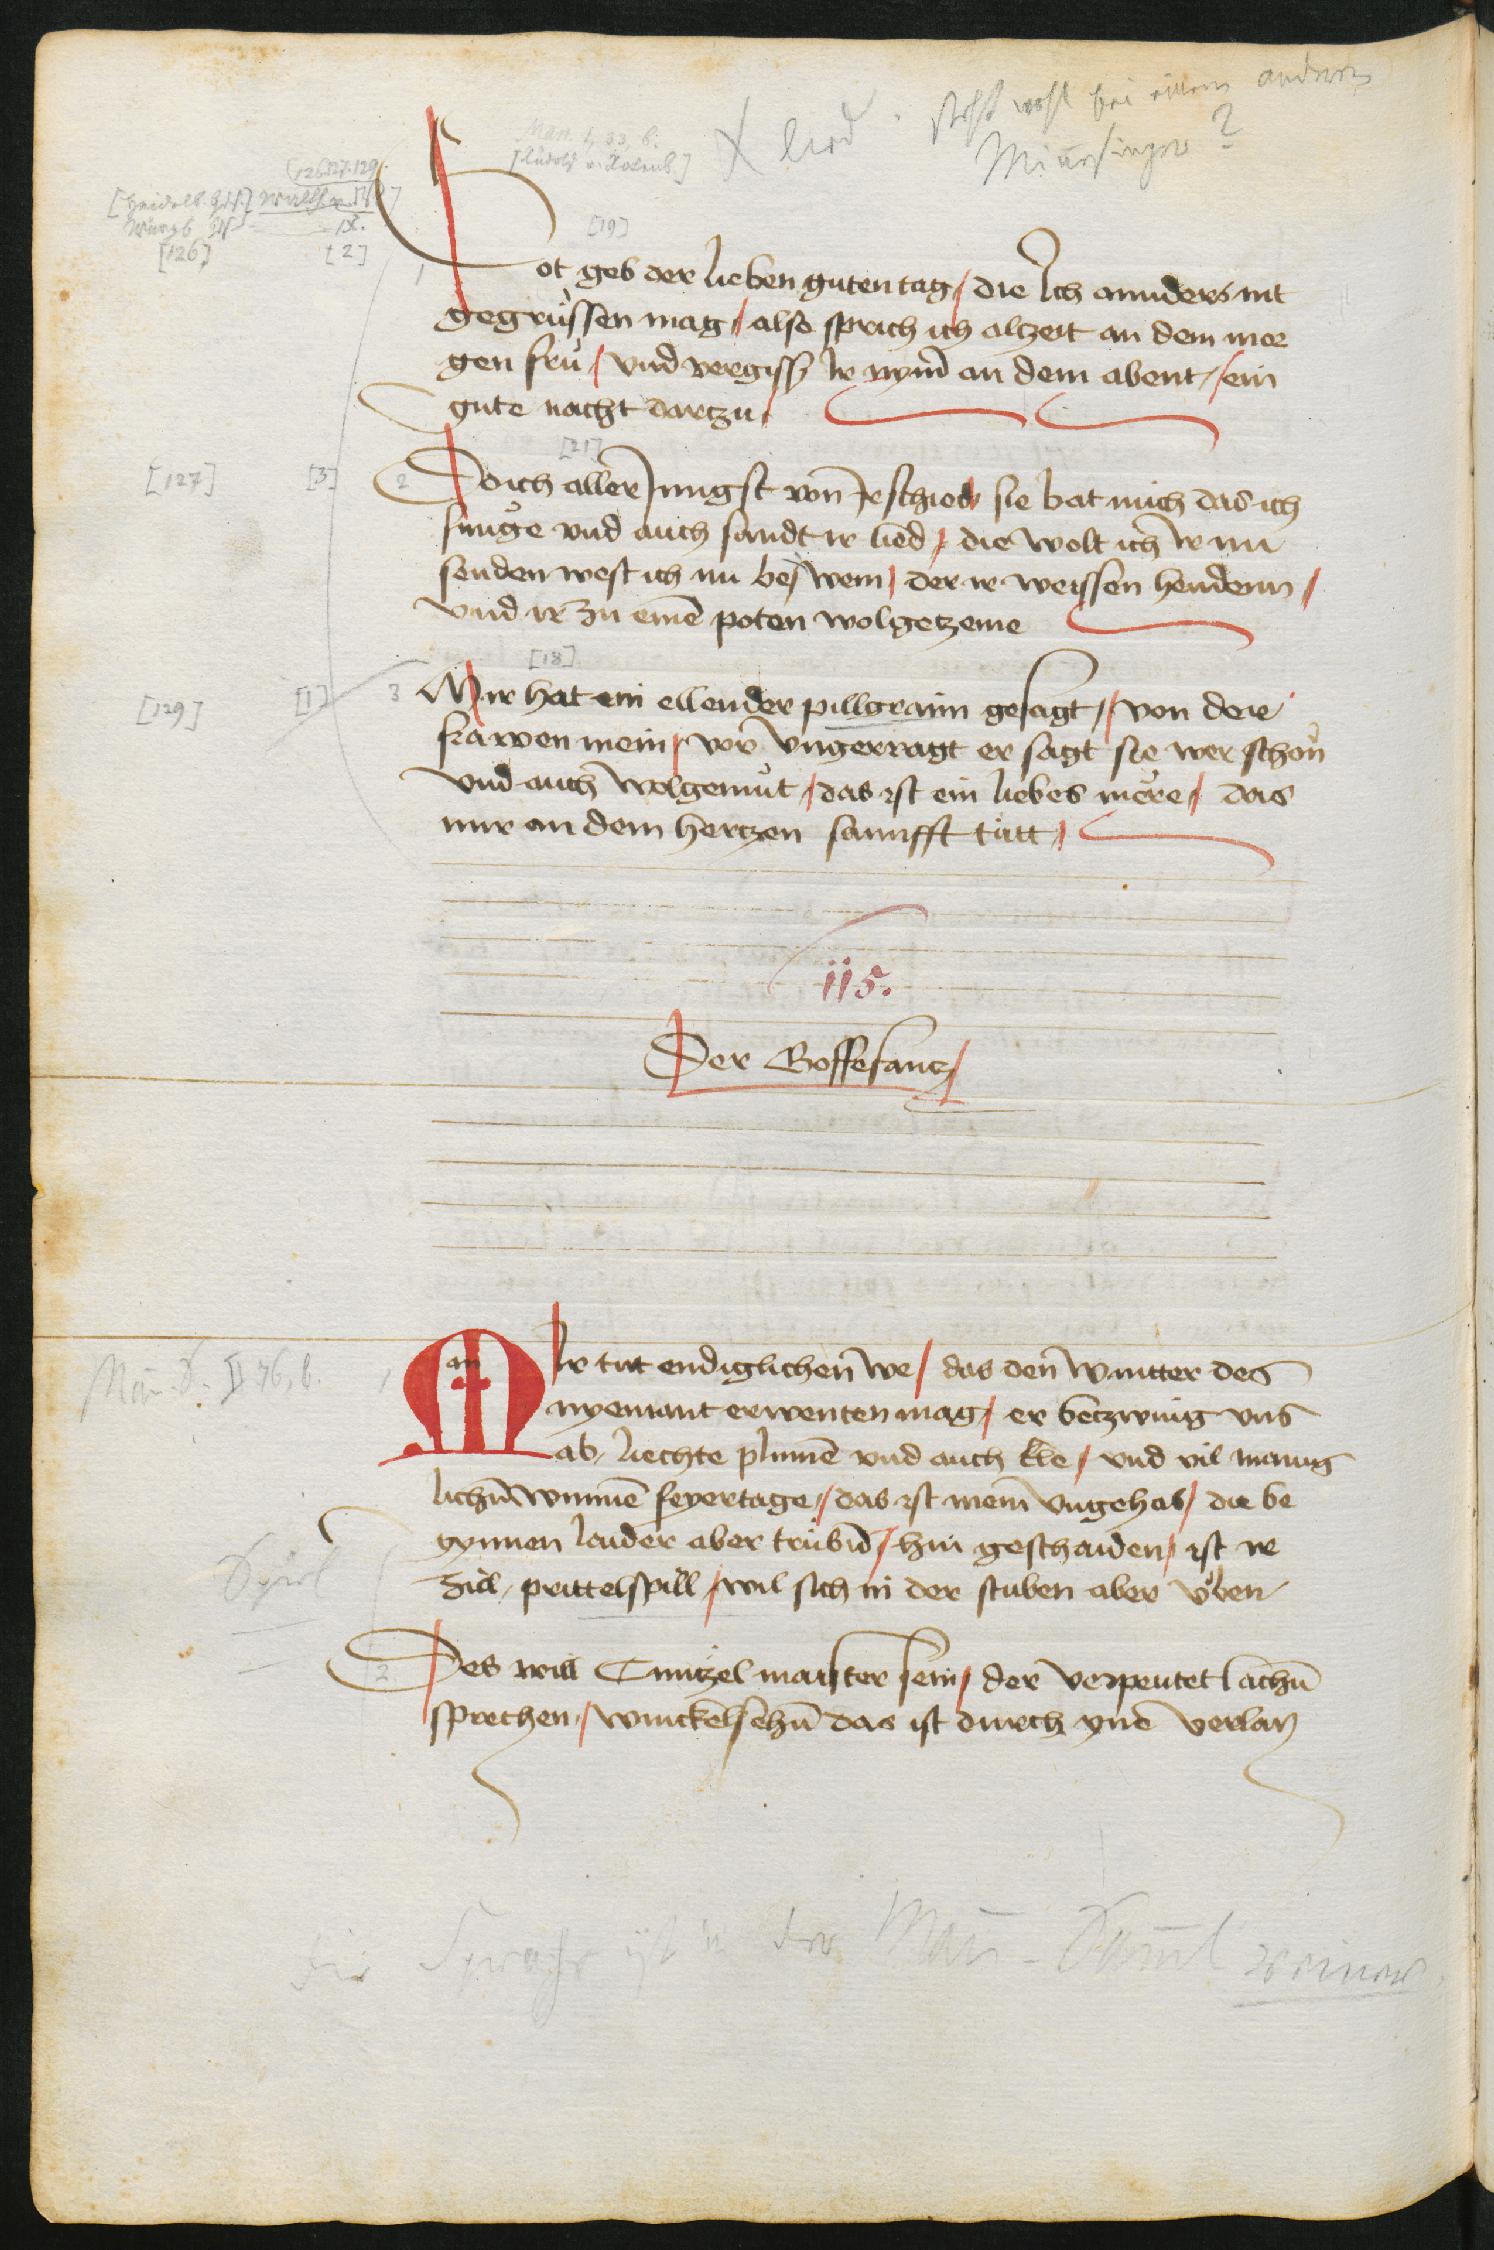 Man. 1, 33, b.
[Rudolf v. Rotenb.]
X lied. steht wohl bei einem andern
Minnesinger?
(126.127.129.
[Heidelb. Hds.]
[126] [2] [19]
ot geb der lieben guten tag / die Ich annders nit
gegrüssen mag / also sprich ich alczeit an dem mor
gen frü / vnd vergiss Ir nym̄ an dem abent / ein
gute nacht darczu /
[127] [3] 2 [21]
Do ich aller Jungst von Ir schied / sie bat mich das ich
sunge vnd auch sandt ir lied / die wolt ich Ir nu
senden west ich nu bej wem / der ir weissen hendenn /
vnd ir zu eine͂ poten wolgetzeme
[129] [1] 3 [18]
Mir hat ein ellender pillgraim gesagt / von der
frawen mein / vor vngerragt er sagt sie wer schon
vnd auch wolgemut / das ist ein liebes mere / das
mir an dem hertzen sannfft tütt /
115.
Der Goffesancz /
Man. S. II 76, b. 1
Mir tut endiglichen we / das den wintter des
nyemant erwenten mag / er betzwing vns
ab / liechte plume͂ vnd auch kle / vnd vil mannig
lichn̄ wunne͂ feyertage / das ist mein vngehab / die be
gynnen lauder aber trübn̄ / hin geschaiden / ist ir
Spiel
zill / prittelspill / wil sich in der stuben aber vben
2
Des will Cuntzel maister sein / der verpeutet lachn̄
sprechen / winckelsehn̄ das ist durch yne verlan
die Sprache ist in der Man-Saml reiner.